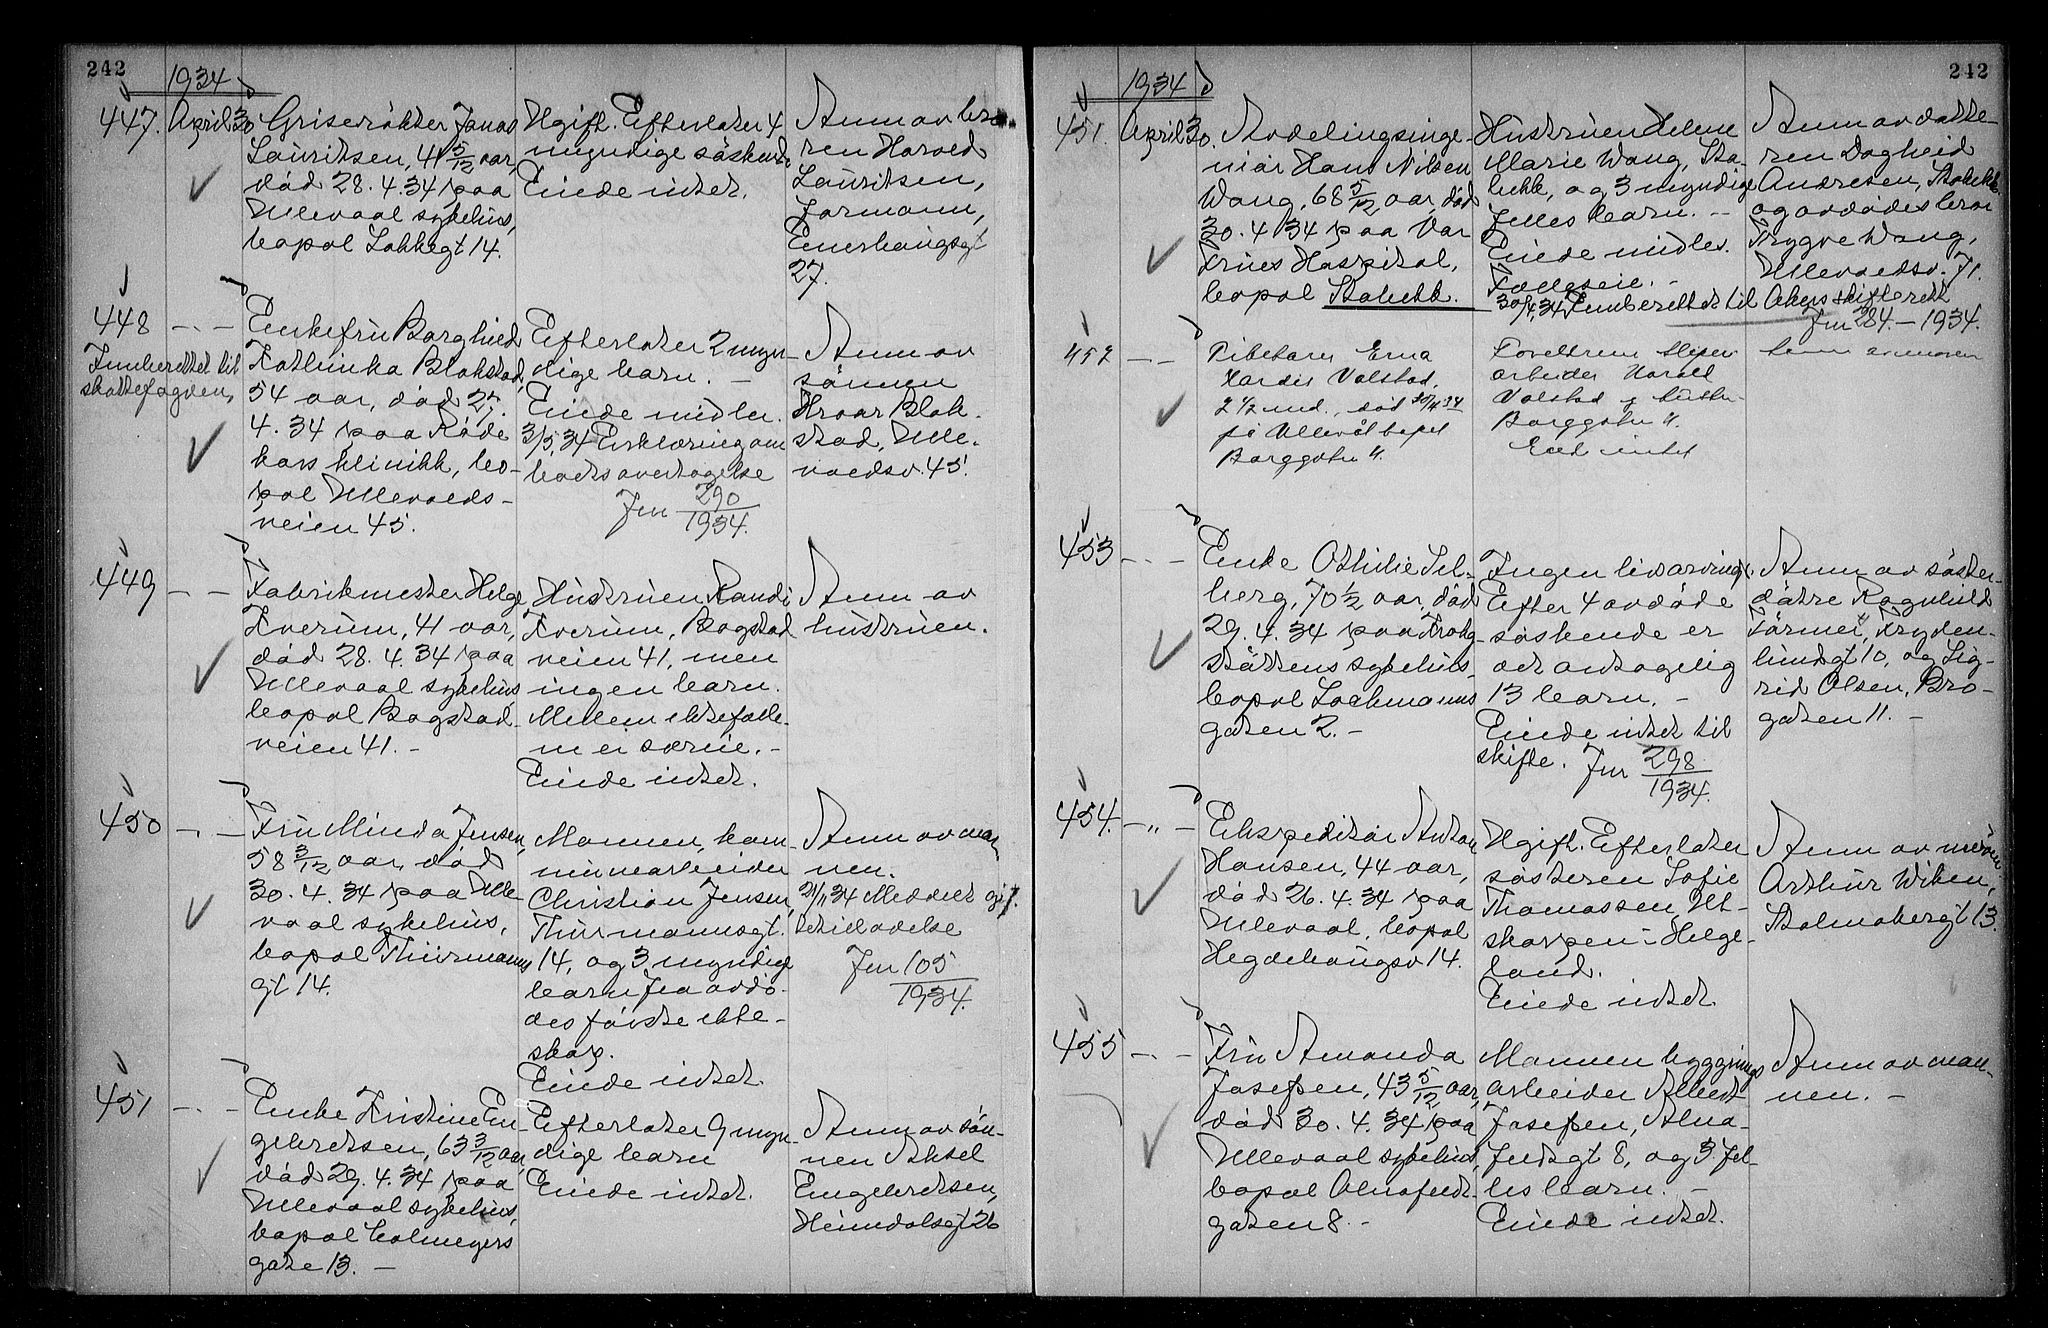 242
1934
447. April 30
Griserökter Jonas
Lauritsen, 41 5/12 aar,
död 28. 4. 34 paa
Ullevaal sykehus,
bopel Lakkegt 14.
Ugift. Efterlater 4
myndige söskende
Eiede intet.
Anm av bro
ren Harald
Lauritsen,
formann,
Enerhaugsgt
27.
448 -"-
Innberettet til
skattefogden,
Enkefru Borghild
Kathinka Blakstad,
54 aar, död 27.
4. 34 paa Röde
kors klinikk, bo-
pel Ullevaals-
veien 45.
Efterlater 2 myn-
dige barn. -
Eiede midler.
3/5, 34 Erklæring om
bodsovertagelse
Jnr 290
1934.
Anm av
sönnen
Hroar Blak-
stad, Ulle-
vaalsv. 45.
449 - -
Fabrikmester Helge
Kverum, 41 aar,
död 28. 4. 34 paa
Ullevaal sykehus
bopel Bogstad-
veien 41. -
Hustruen Randi
Kverum, Bogstad
veien 41, men
ingen barn.
Mellem ektefolle-
m ei særeie. -
Eiede intet.
Anm av
hustruen.
450 -.-
Fru Minda Jensen,
58 3/12 aar, död
30. 4. 34 paa Ulle
vaal sykehus,
bopel Thurmanns
gt 14.
Mannen, kom-
munearbeider
Christian Jensen,
Thurmannsgt.
14, og 3 myndige
barn fra avdö-
des förste ekte-
skap.
Eiede intet.
Anm av man
nen.
21/11 34 Meddelt
skiftavdelse
Jnr 105
1934.
451 -.-
Enke Kristine En-
gebretsen, 63 3/12 aar,
död 29. 4. 34 paa
Ullevaal sykehus,
bopel Colmeyers
gate 13. -
Efterlater 9 myn-
dige barn
Eiede intet.
Anm av sön-
nen Aksel
Engebretsen,
Heimdalsgt 26
242
1934
451. April 30.
Avdelingsinge-
niör Hans Nilsen
Wang, 68 5/12 aar, död
30. 4. 34 paa Vor
Frues Hospital,
bopel Stabekk.
Hustruen Helene
Marie Wang, Sta-
bekk, og 3 myndige
felles barn. -
Eiede midler.
Felleseie. -
30/4, 34 Innberettet til Akers skifterett
Jnr 284. - 1934.
Anm av datte-
ren Dagheid
Andresen, Stabekk
og avdödes bror
Trygve Wang,
Ullevaalsv. 71.
452 - -
Pikebarn Erna
Hardis Volstad,
2 1/2 mnd., död 30/4 34
på Ullevål bopel
Borggata 4.
Foreldrene
arbeider Harald
Volstad og hustru
Borggata 4.
Eied intet
453 -.-
Enke Othilie Sel-
berg, 70 1/2 aar, död
29. 4. 34 paa Krohg-
stöttens sykehus
bopel Lochmanns
gaten 2. -
Ingen livsarvinger,
Efter 4 avdöde
söskende er
det antagelig
13 barn. -
Eiede intet til
skifte. Jnr 298
1934.
Anm av söster-
dötre Ragnhild
Fryden-
lundgt 10, og Sig-
rid Olsen, Bro-
gaten 11. -
454. -"-
Ekspeditör Anton
Hansen, 44 aar,
död 26. 4. 34 paa
Ullevaal, bopel
Hegdehaugsv 14.
Ugift. Efterlater
sösteren Sofie
Thomassen, Ut-
skarpen i Helge-
land.
Eiede intet
Anm av nevöen
Arthur Wiken,
Stolmakergt 13.
455 -.-
Fru Amanda
Josefsen, 43 5/12 aar,
död 30. 4. 34 paa
Ullevaal sykehus,
bopel Alnafeldt-
gaten 8. -
Mannen bygnings
arbeider Albert
Josefsen, Alna-
feldtgt 8, og 3 fel-
les barn. -
Eiede intet.
Anm av man-
nen. -